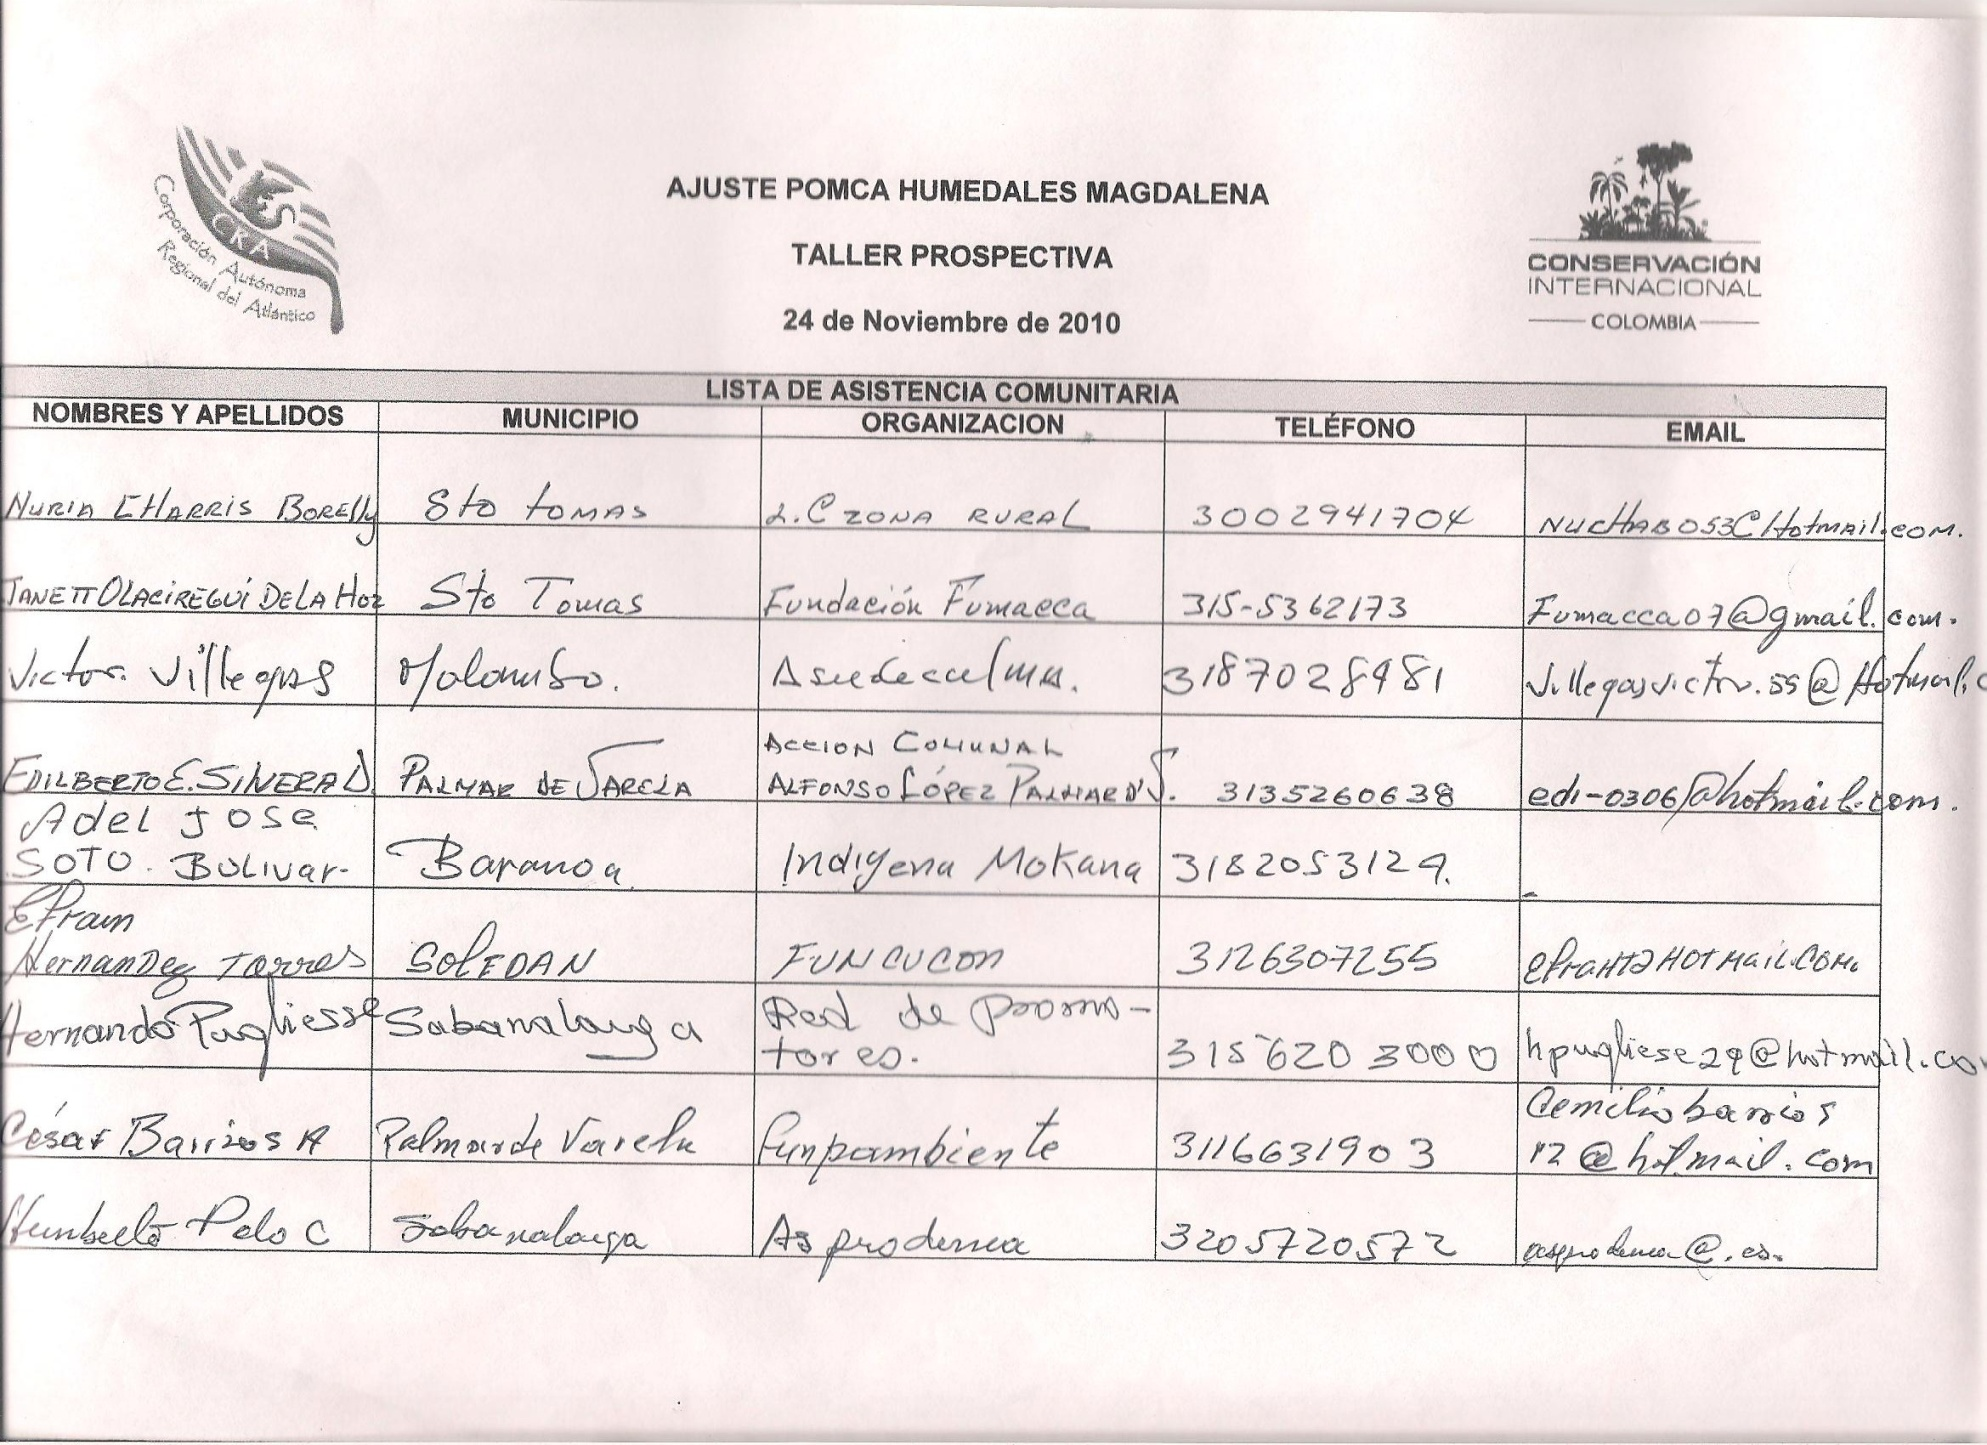 CRA
Corporación Autónoma
Regional del Atlántico
AJUSTE POMCA HUMEDALES MAGDALENA
TALLER PROSPECTIVA
24 de Noviembre de 2010
CONSERVACIÓN
INTERNACIONAL
COLOMBIA
LISTA DE ASISTENCIA COMUNITARIA
NOMBRES Y APELLIDOS MUNICIPIO ORGANIZACION TELÉFONO EMAIL
NURIA CHARRIS BORELLY Sto tomas L.C ZONA RURAL 3002941704 NUCHABO53@Hotmail.com.
JANETT OLACIREGUI DE LA HOZ Sto Tomas Fundación Fumacca 315-5362173 Fumacca07@gmail.com.
Victor Villegas Malambo. 3187028981 Villegasvictor.55@Hotmail.c
ACCION COMUNAL
EDILBERTO E. SILVERA D. PALMAR DE VARELA ALFONSO LÓPEZ PALMAR D'V. 3135260638 edi-0306@hotmail.com.
Adel Jose
SOTO. BOLIVAR- Baranoa Indigena Mokana 3182053129.
Efrain
Hernandez Torres SOLEDAN FUNCUCON 3126307255 EfraHT2HOTMAIL.COM.
Hernando Pugliesse Sabanalarga Red de promo-
tores. 315 620 3000 hpugliese29@hotmail.co
Cemiliobarrios
César Barrios A Palmar de Varela Funpambiente 3116631903 12@hotmail.com
Humberto Polo C Sabanalarga Asprodema 3205720572 asprodema@.es.